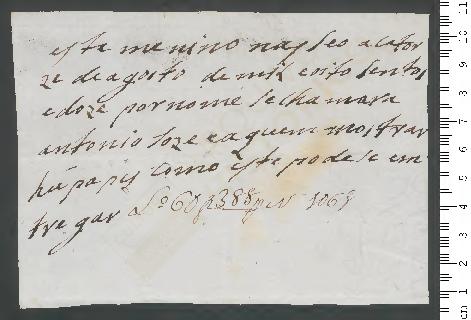 este menino nasseo acator
ze de agosto de mil eoito sentos
edoze por nome se chamara
antonio Joze eaquem mostrar
hũ papis como este podese em
tregar Lº 60 f 388 1061